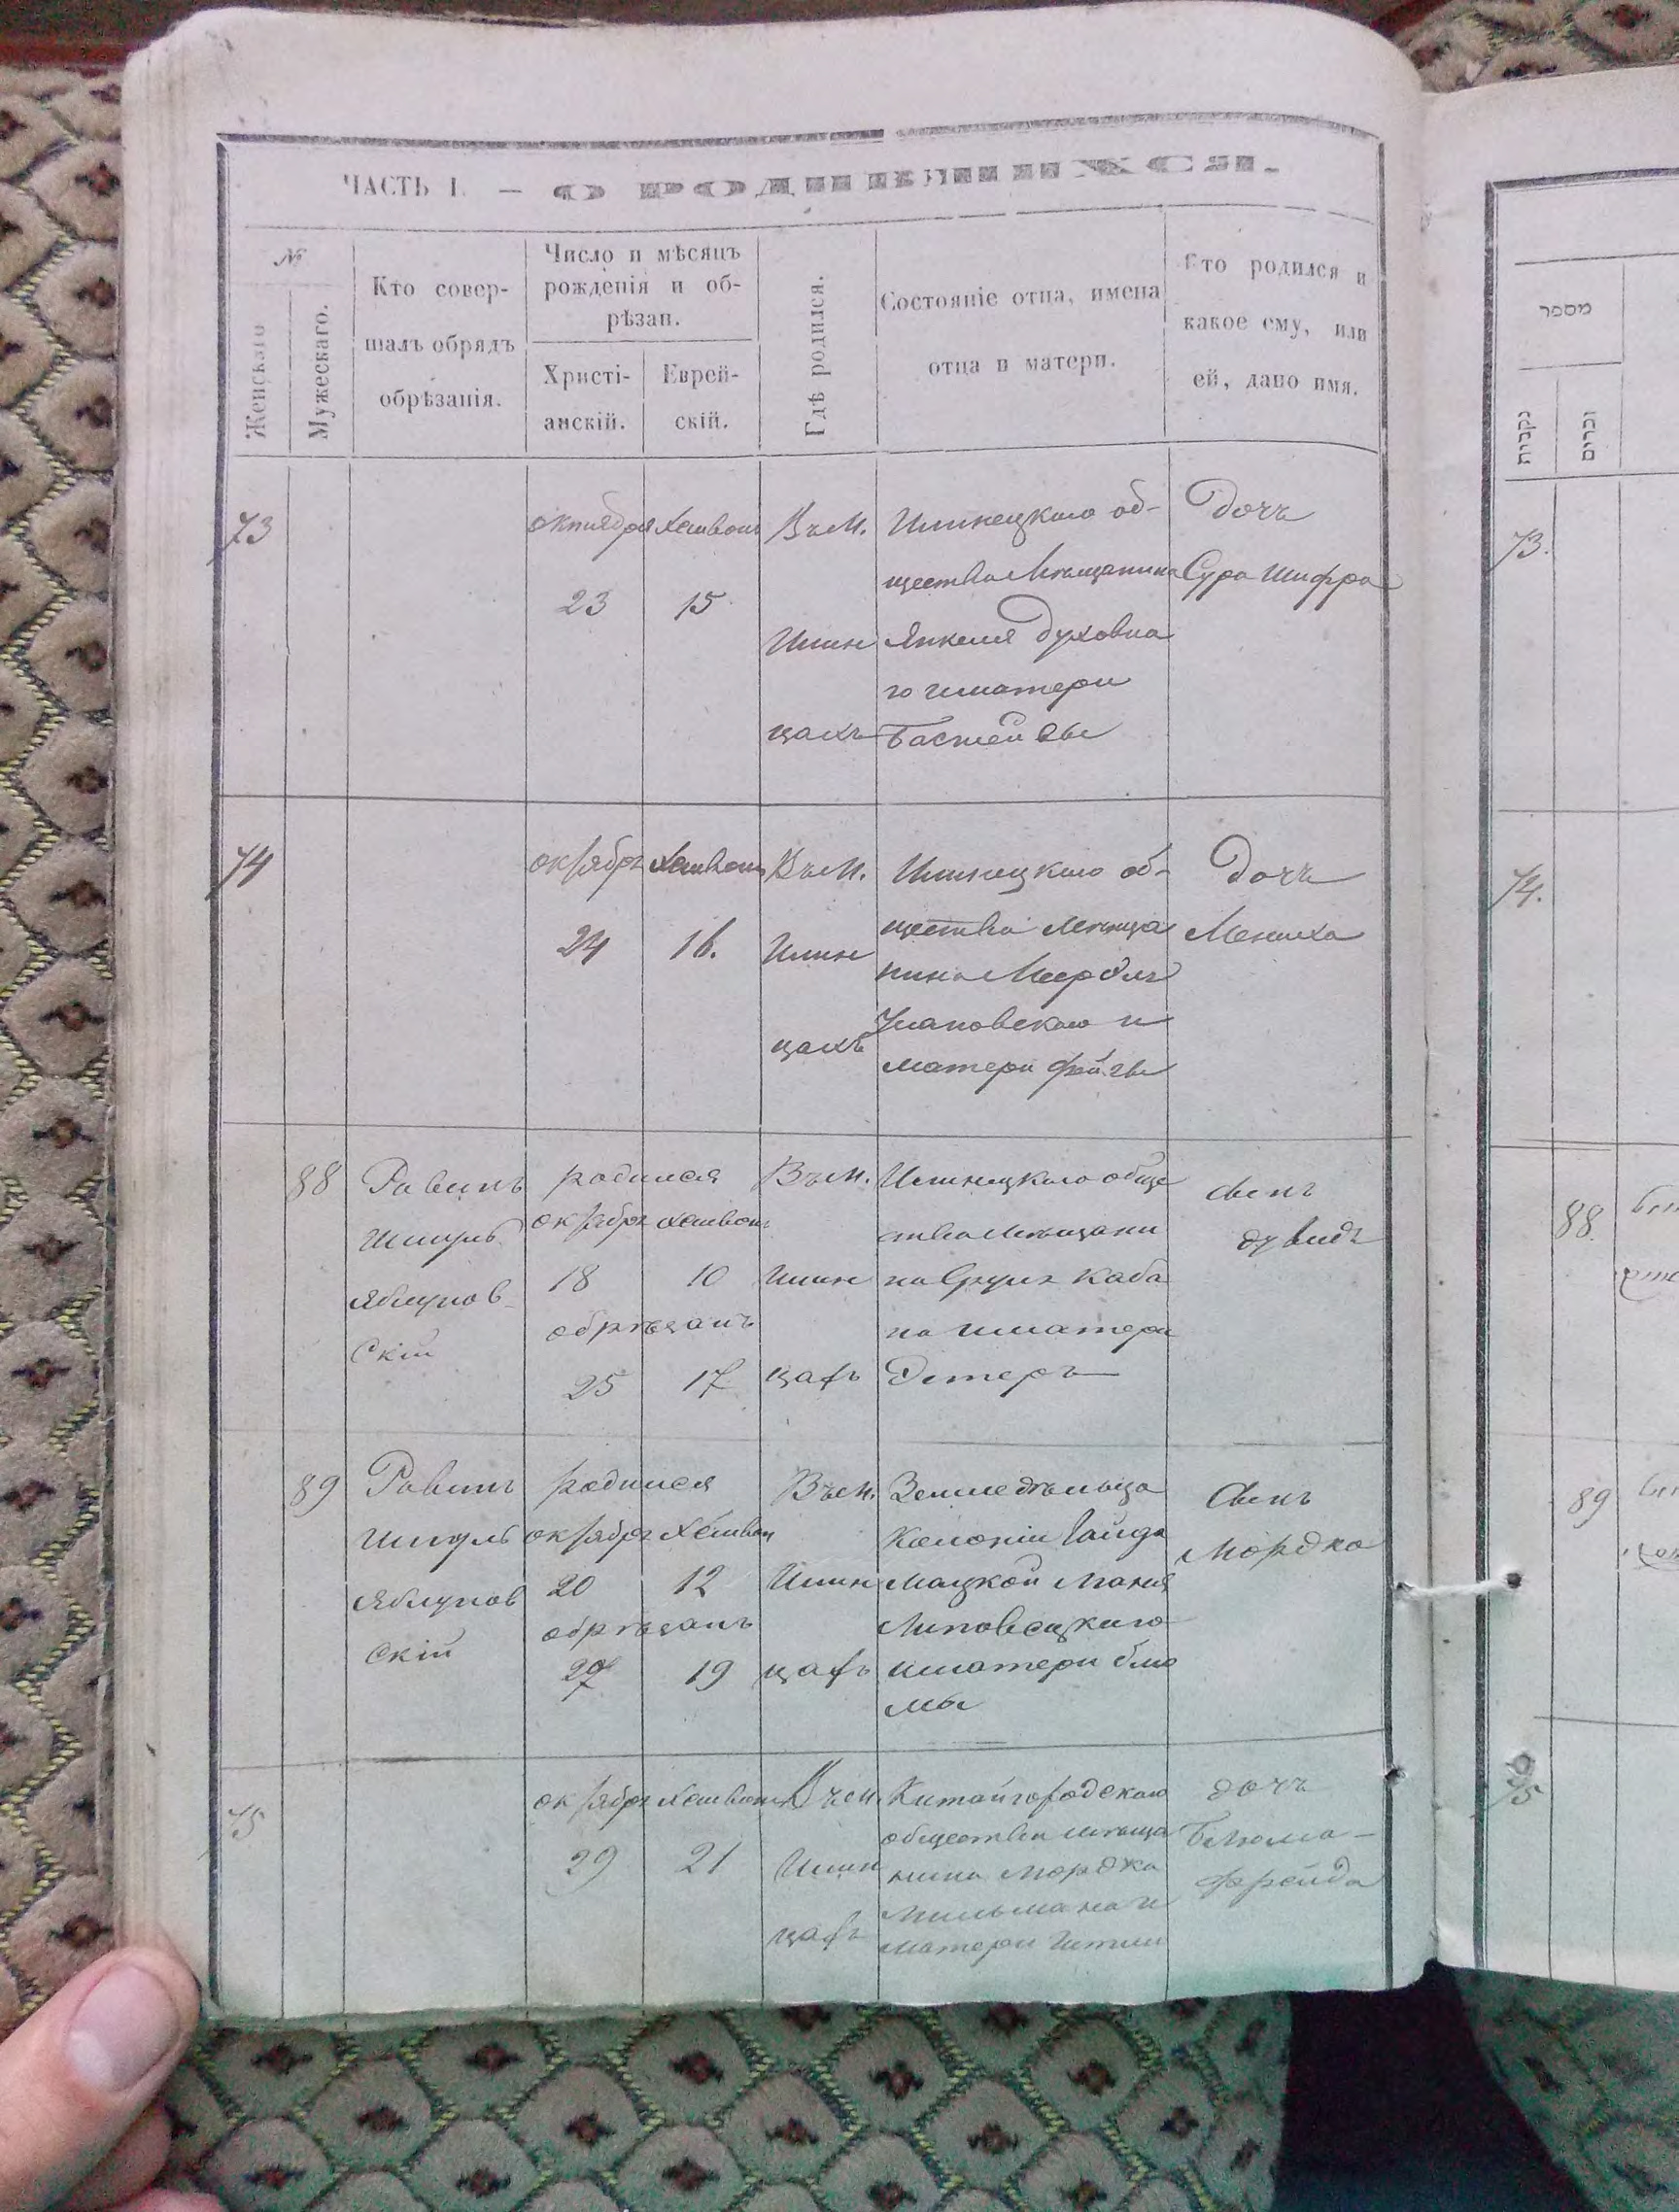 ЧАСТЬ I. — О РОДИВШИХСЯ.
№
Женскаго
Мужескаго.
Кто совер-
шалъ обрядъ
обрѣзанія.
Число и мѣсяцъ
рожденія и об-
рѣзан.
Христі-
анскій.
Еврей-
скій.
Гдѣ родился.
Состояніе отца, имена
отца и матери.
Кто родился и
какое ему, или
ей, дано имя.
73
октября
23
Хешвонъ
15
Въ М.
Илин
цахъ
Илинецкаго об-
щества Мѣщанина
Янкеля Духовна
го и матери
Бастейвы
Дочь
Сура Шифра
74
октябрь
24
Хешвонъ
16.
Въ М.
Илин
цахъ
Илинецкаго об-
щества Мѣща
нина Меер
матери Фейги
Дочь
Мениха
88
Равинъ
Шмуль
Яблунов-
скій
родился
октябрь Хешвонъ
18 10
обрѣзанъ
25 17
Въ М.
Илин
цахъ
Илинецкаго обще
ства Мѣщани
на Сруля Каба
на и матери
Эстеръ
Сынъ
Дувидъ
89
Равинъ
Шмуль
Яблунов
скій
родился
октябрь Хешвон
20 12
обрѣзанъ
27 19
Въ М.
Илин
цахъ
Земледѣльца
Колоніи Гайда
мацкой
Липовецкаго
и матери Блю
мы
Сынъ
Мордко
75
октябрь
29
Хешвонъ
21
Въ М.
Илин
цахъ
Китайгородскаго
общества мѣща
нина Мордка
Мильмана и
матери
дочь
Блюма-
Фрейда
מספר
נקבות
זכרים
73.
74.
88.
89
75